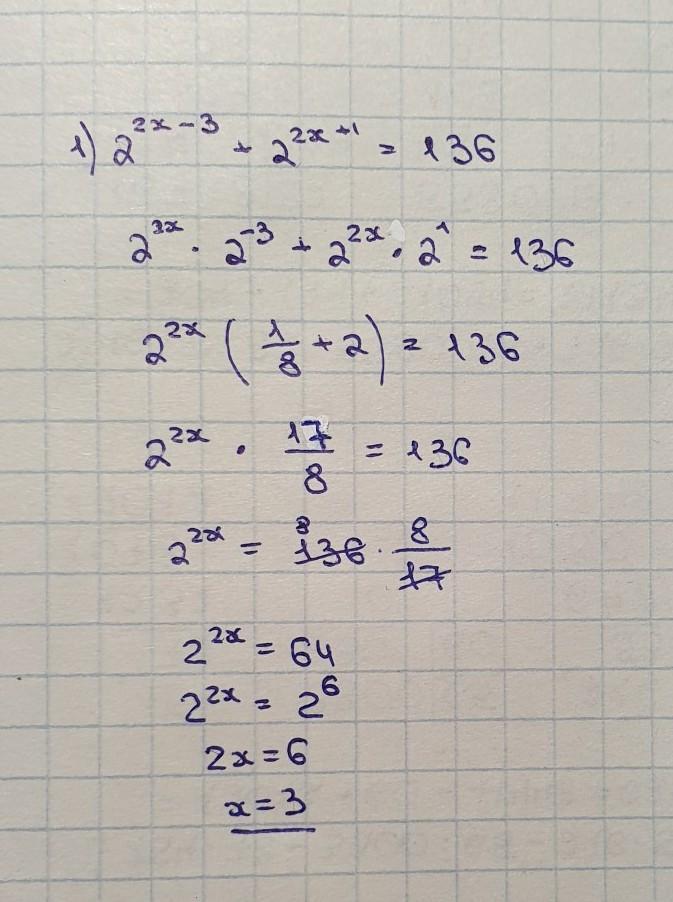 1) 2^{2x-3} + 2^{2x+1} = 136
2^{3x} · 2^{-3} + 2^{2x} · 2^{1} = 136
2^{2x} (1/8 + 2) = 136
2^{2x} · 17/8 = 136
2^{2x} = 8 136 · 8/17
2^{2x} = 64
2^{2x} = 2^{6}
2x = 6
x = 3